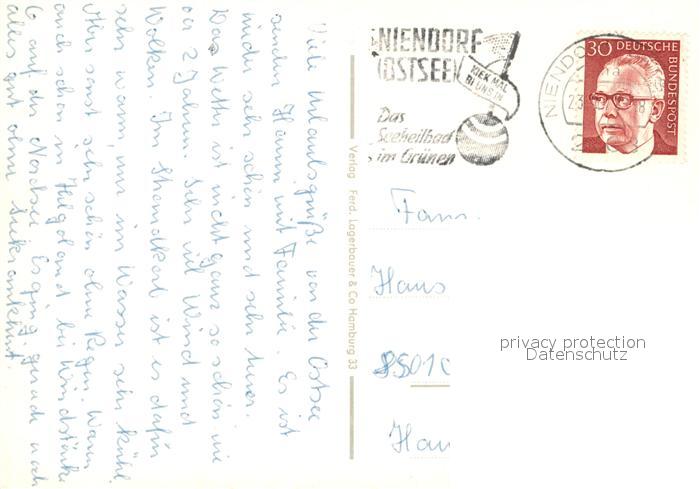 Viele Urlaubsgrüße von der Ostsee
senden Hanni mit Familie. Es ist
wieder sehr schön und sehr teuer.
Das Wetter ist nicht ganz so schön wie
vor 2 Jahren. Sehr viel Wind und
Wolken. Im Strandkorb ist es dafür
sehr warm, nur im Wasser sehr kühl.
Aber sonst sehr schön ohne Regen. Waren
auch schon in Helgoland bei Windstärke
6 auf der Nordsee. Es ging gerade noch
alles gut ohne Seekrankheit.
Verlag Ferd. Lagerbauer & Co Hamburg 33
NIENDORF
(OSTSEE)
DIEK MAL
BI UNS IN
Das
Seeheilbad
im Grünen
NIENDO
30 DEUTSCHE
BUNDESPOST
Fam.
Hans
8501
Hau
privacy protection
Datenschutz